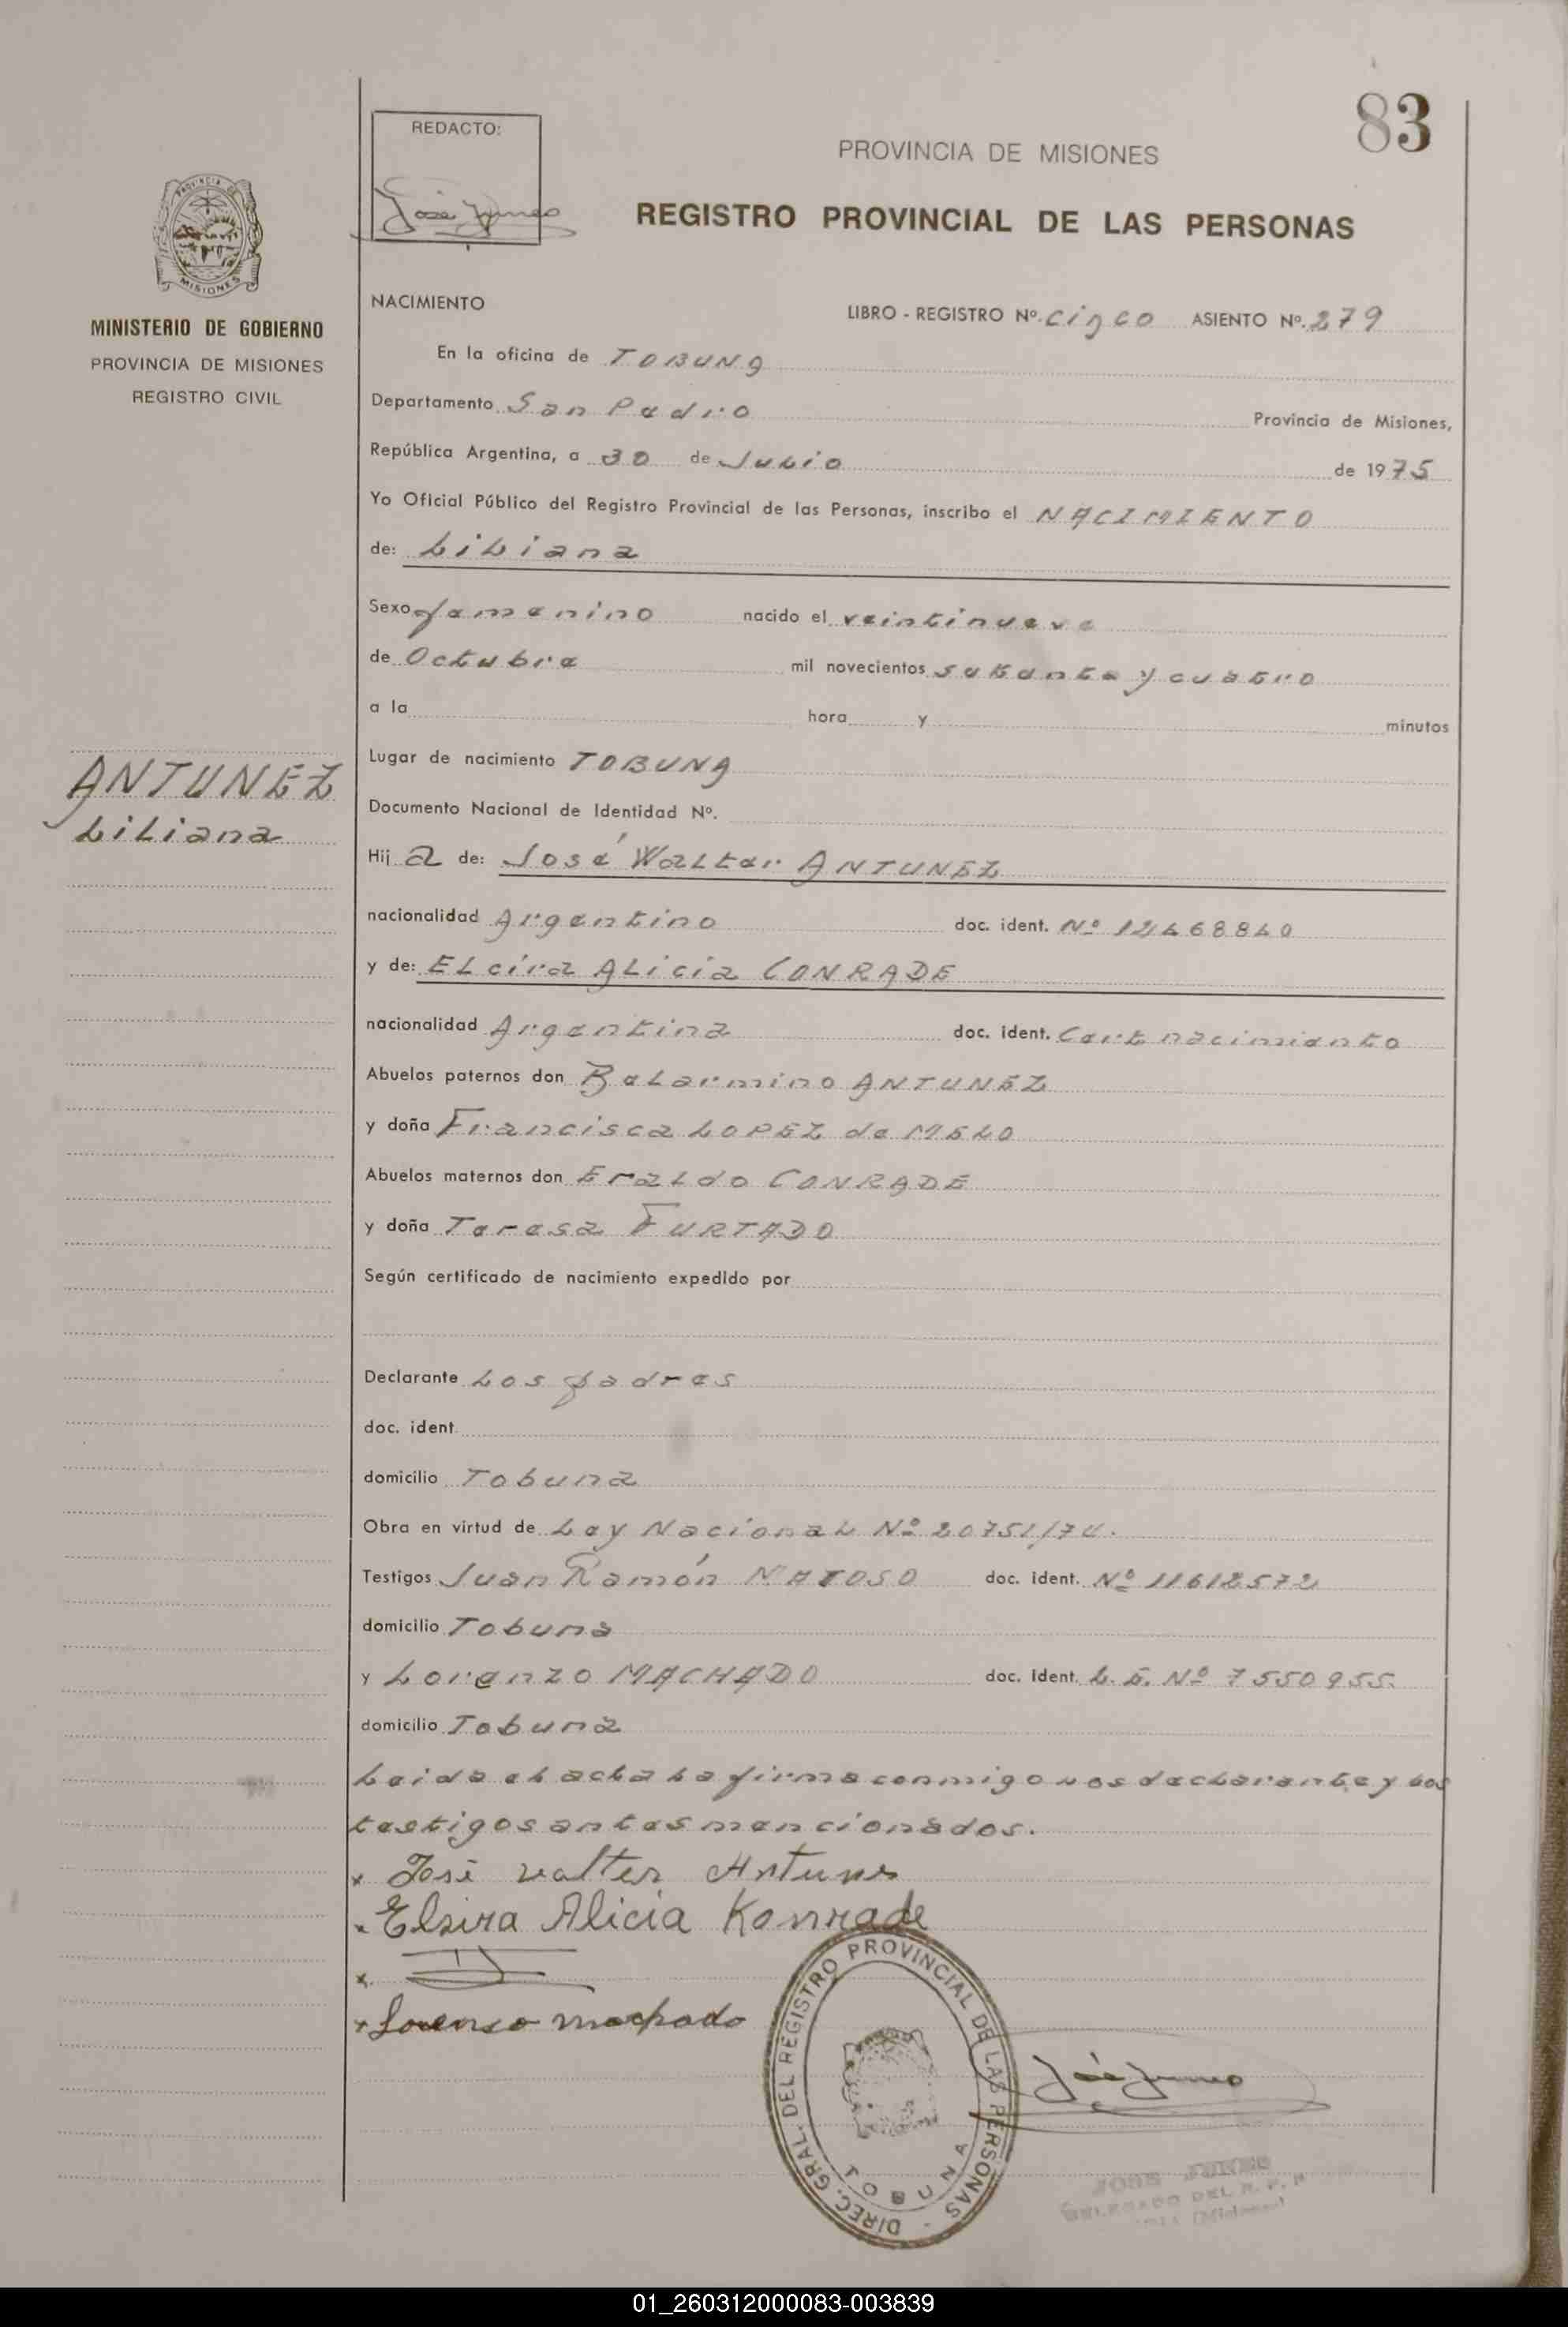 83
REDACTO:
PROVINCIA DE MISIONES
REGISTRO PROVINCIAL DE LAS PERSONAS
PROVINCIA DE
MISIONES
MINISTERIO DE GOBIERNO
PROVINCIA DE MISIONES
REGISTRO CIVIL
NACIMIENTO
LIBRO - REGISTRO Nº. cinco ASIENTO Nº. 279
En la oficina de TOBUNA
Departamento San Pedro Provincia de Misiones,
República Argentina, a 30 de Julio de 1975
Yo Oficial Público del Registro Provincial de las Personas, inscribo el NACIMIENTO
de: Liliana
Sexo femenino nacido el veintinueve
de Octubre mil novecientos setenta y cuatro
a la hora y minutos
Lugar de nacimiento TOBUNA
ANTUNEZ
Liliana
Documento Nacional de Identidad Nº.
Hij a de: José Walter ANTUNEZ
nacionalidad Argentino doc. ident. Nº
y de: ELcira ALicia CONRADE
nacionalidad Argentina doc. ident. Cert nacimiento
Abuelos paternos don Belarmino ANTUNEZ
y doña Francisca LOPEZ de MELO
Abuelos maternos don EraLdo CONRADE
y doña Teresa FURTADO
Según certificado de nacimiento expedido por
Declarante Los padres
doc. ident
domicilio Tobuna
Obra en virtud de Ley Nacional Nº 20751/74.
Testigos Juan Ramón doc. ident. Nº 11612572
domicilio Tobuna
y Lorenzo MACHADO doc. ident. L.E. Nº 7550955.
domicilio Tobuna
Leida el acta la firma conmigo los declarante y los
testigos antes mencionados.
x José valter Antunes
x Elsira Alicia Konrade
x
x Lorenso machado
DIREC. GRAL. DEL REGISTRO PROVINCIAL DE LAS PERSONAS -
TOBUNA
DELEGADO DEL R. P. P
(Misiones)
01_260312000083-003839